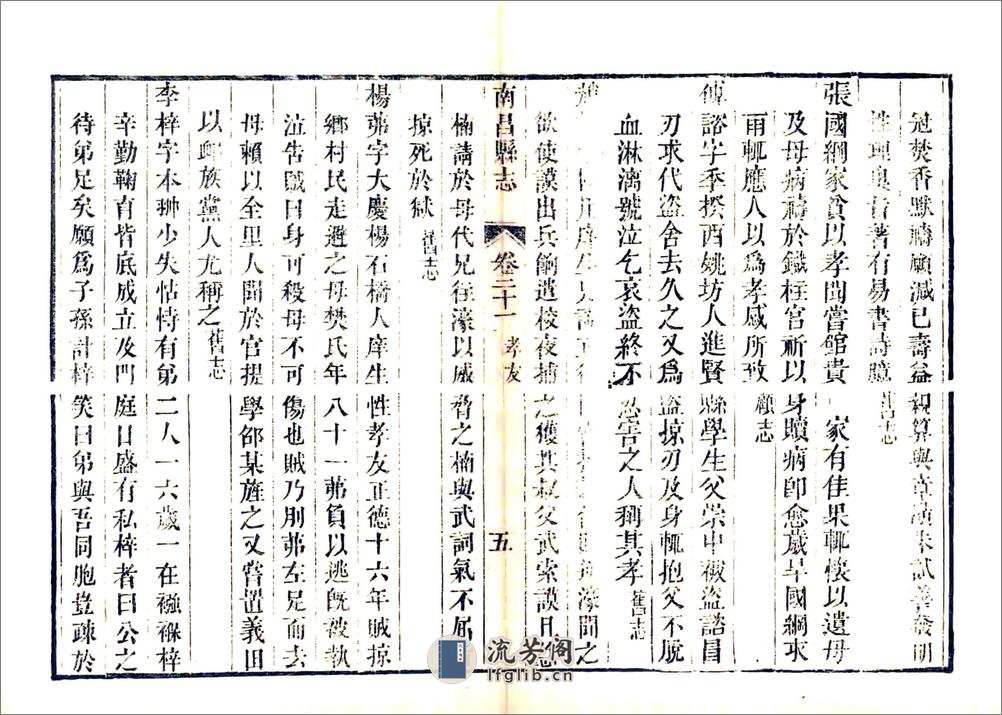 冠焚香默禱願減已壽益親算與章潢朱試善發明
性理奧旨著有易書詩臆舊志
張國綱家貧以孝聞嘗館貴家有佳果輒懷以遺母
及母病禱於鐵柱宮祈以身贖病卽愈歲旱國綱求
雨輒應人以爲孝感所致顧志
傅諮字季揆西姚坊人進賢縣學生父崇中被盜諮冒
刃求代盜舍去久之又爲盜掠刃及身輒抱父不脫
血淋漓號泣乞哀盜終不忍害之人稱其孝舊志
濠聞之
欲使謨出兵餉遣校夜捕之獲其叔父武索謨日急
南昌縣志 卷二十一 孝友 五
楠請於母代兄往濠以威脅之楠與武詞氣不屈
掠死於獄舊志
楊茀字大慶楊石橋人庠生性孝友正德十六年賊掠
鄉村民走避之母樊氏年八十一茀負以逃旣被執
泣告賊曰身可殺母不可傷也賊乃刖茀左足而去
母賴以全里人聞於官提學邵某旌之又嘗置義田
以卹族黨人尤稱之舊志
李梓字本翀少失怙恃有弟二人一六歲一在襁褓梓
辛勤鞠育皆底成立及門庭日盛有私梓者曰公之
待弟足矣願爲子孫計梓笑曰弟與吾同胞豈疎於
流芳阁
lfglib.cn